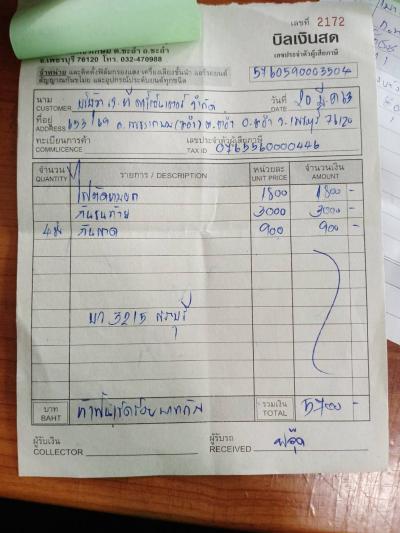 เลขที่ 2172
บิลเงินสด
อ.เพชรบุรี 76120 โทร. 032-470988
เลขประจำตัวผู้เสียภาษี
จำหน่าย และติดตั้งฟิล์มกรองแสง เครื่องเสียงชั้นนำ แอร์รถยนต์
สัญญาณกันขโมย และอุปกรณ์ประดับยนต์ทุกชนิด
5760590003504
นาม
CUSTOMER
จำกัด
วันที่
DATE 20 มี.ค 63
ที่อยู่
ADDRESS 653/69 ต.ชะอำ อ.ชะอำ จ.เพชรบุรี 76120
ทะเบียนการค้า
COMMLICENCE
เลขประจำตัวผู้เสียภาษี
TAX ID 0765560000446
จำนวน
QUANTITY
รายการ / DESCRIPTION
หน่วยละ
UNIT PRICE
จำนวนเงิน
AMOUNT
ไฟตัดหมอก 1800 1800 -
กันชนท้าย 3000 3000 -
900 900 -
3215 สระบุรี
บาท
BAHT
ห้าพันเจ็ดร้อยบาทถ้วน
รวมเงิน
TOTAL 5700 -
ผู้รับเงิน
COLLECTOR
ผู้รับรถ
RECEIVED